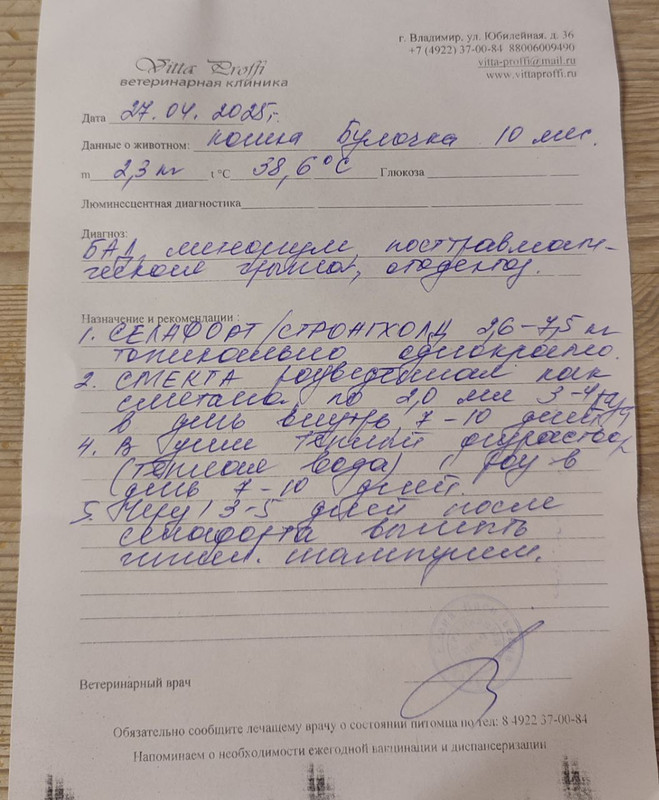 г. Владимир, ул. Юбилейная, д. 36
+7 (4922) 37-00-84 88006009490
vitta-proffi@mail.ru
www.vittaproffi.ru
Vitta Proffi
ветеринарная клиника
Дата 27.04.2025г.
Данные о животном: кошка Булочка 10 мес.
m 2,3 кг t °C 38,6°C Глюкоза
Люминесцентная диагностика
Диагноз:
посттравмати-
ческая грыжа, отодектоз.
Назначение и рекомендации :
1. СЕЛАФОРТ/СТРОНГХОЛД 2,6-7,5 кг
топикально однократно.
2. СМЕКТА разведённая как
сметана по 2,0 мл 3-4 р
в день внутрь 7-10 дней
4. В уши тёплый физраствор
(тёплая вода) 1 раз в
день 7-10 дней.
5. Через 3-5 дней после
селафорта вымыть
шампунем.
Ветеринарный врач
Обязательно сообщите лечащему врачу о состоянии питомца по тел: 8 4922 37-00-84
Напоминаем о необходимости ежегодной вакцинации и диспансеризации